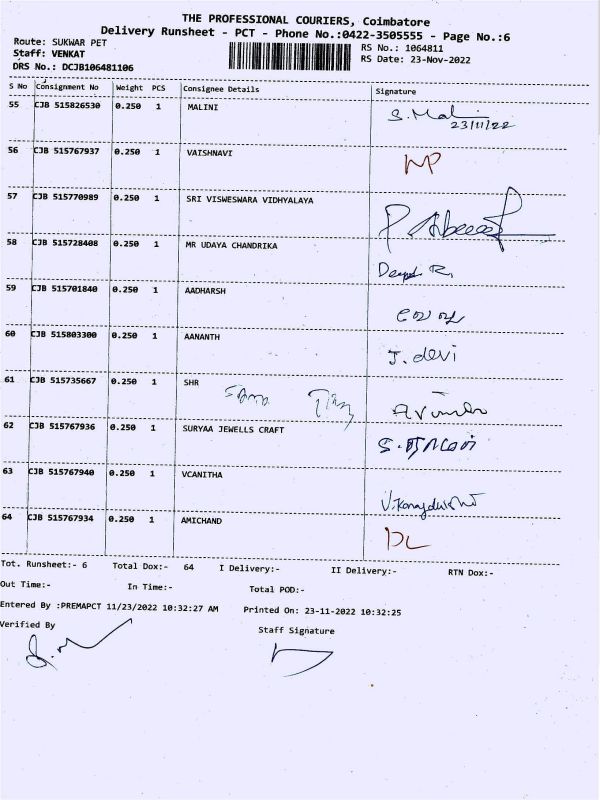 THE PROFESSIONAL COURIERS, Coimbatore
Delivery Runsheet - PCT - Phone No.:0422-3505555 - Page No.:6
Route: SUKWAR PET
RS No.: 1064811
Staff: VENKAT
RS Date: 23-Nov-2022
DRS No.: DCJB106481106
S No Consignment No Weight PCS Consignee Details Signature
55 CJB 515826530 0.250 1 MALINI S. Mal
23/11/22
56 CJB 515767937 0.250 1 VAISHNAVI
57 CJB 515770989 0.250 1 SRI VISWESWARA VIDHYALAYA
58 CJB 515728408 0.250 1 MR UDAYA CHANDRIKA
59 CJB 515701840 0.250 1 AADHARSH
60 CJB 515803300 0.250 1 AANANTH J. devi
61 CJB 515735667 0.250 1 SHR
62 CJB 515767936 0.250 1 SURYAA JEWELLS CRAFT
63 CJB 515767940 0.250 1 VCANITHA
64 CJB 515767934 0.250 1 AMICHAND
Tot. Runsheet:- 6 Total Dox:- 64 I Delivery:- II Delivery:- RTN Dox:-
Out Time:- In Time:- Total POD:-
Entered By :PREMAPCT 11/23/2022 10:32:27 AM Printed On: 23-11-2022 10:32:25
Verified By Staff Signature